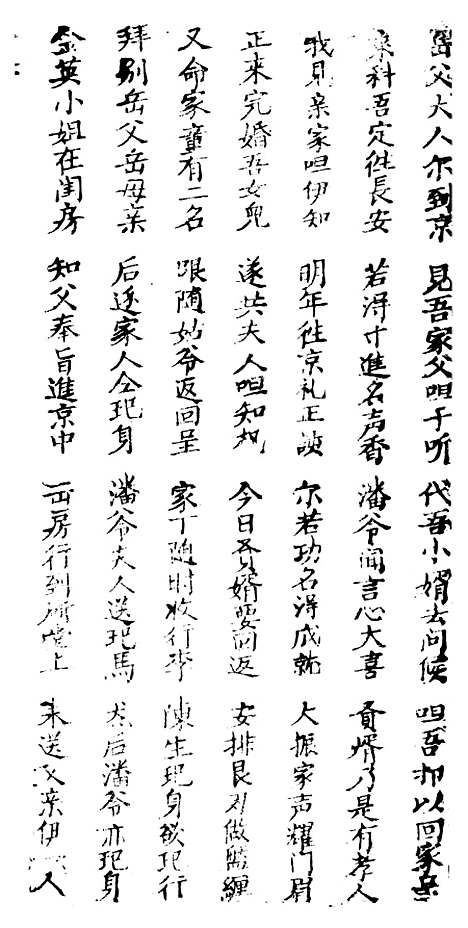 岳父大人尔到京 見吾家父呾于听 代吾小婿去问候 呾吾却以回家
來科吾定往長安 若得寸進名声香 潘爷闻言心大喜 贤婿乃是有孝人
我見亲家呾伊知 明年往京礼正 尔若功名得成就 大振家声耀门眉
正来完婚吾女兒 遂共夫人呾知机 今日贤婿要回返 安排艮两做盘缠
又命家童有二名 跟随姑爷返回呈 家丁随时收行李 陳生起身欲起行
拜别岳父岳母亲 后还家人仝起身 潘爷夫人送起馬 然后潘爷亦起身
金英小姐在闺房 知父奉旨進京中 出房行到所堂上 来送父亲伊人